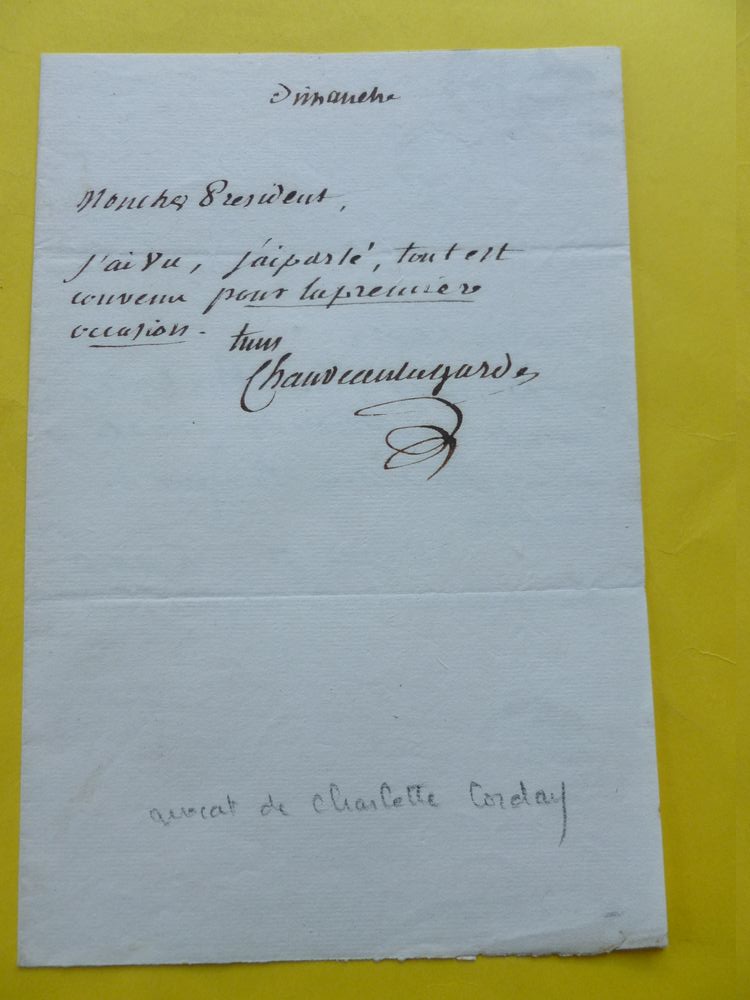 Dimanche
Mon cher President,
J'ai vu, j'ai parlé, tout est
convenu pour la premiere
occasion -
Chauveau Lagarde
avocat de Charlotte Corday